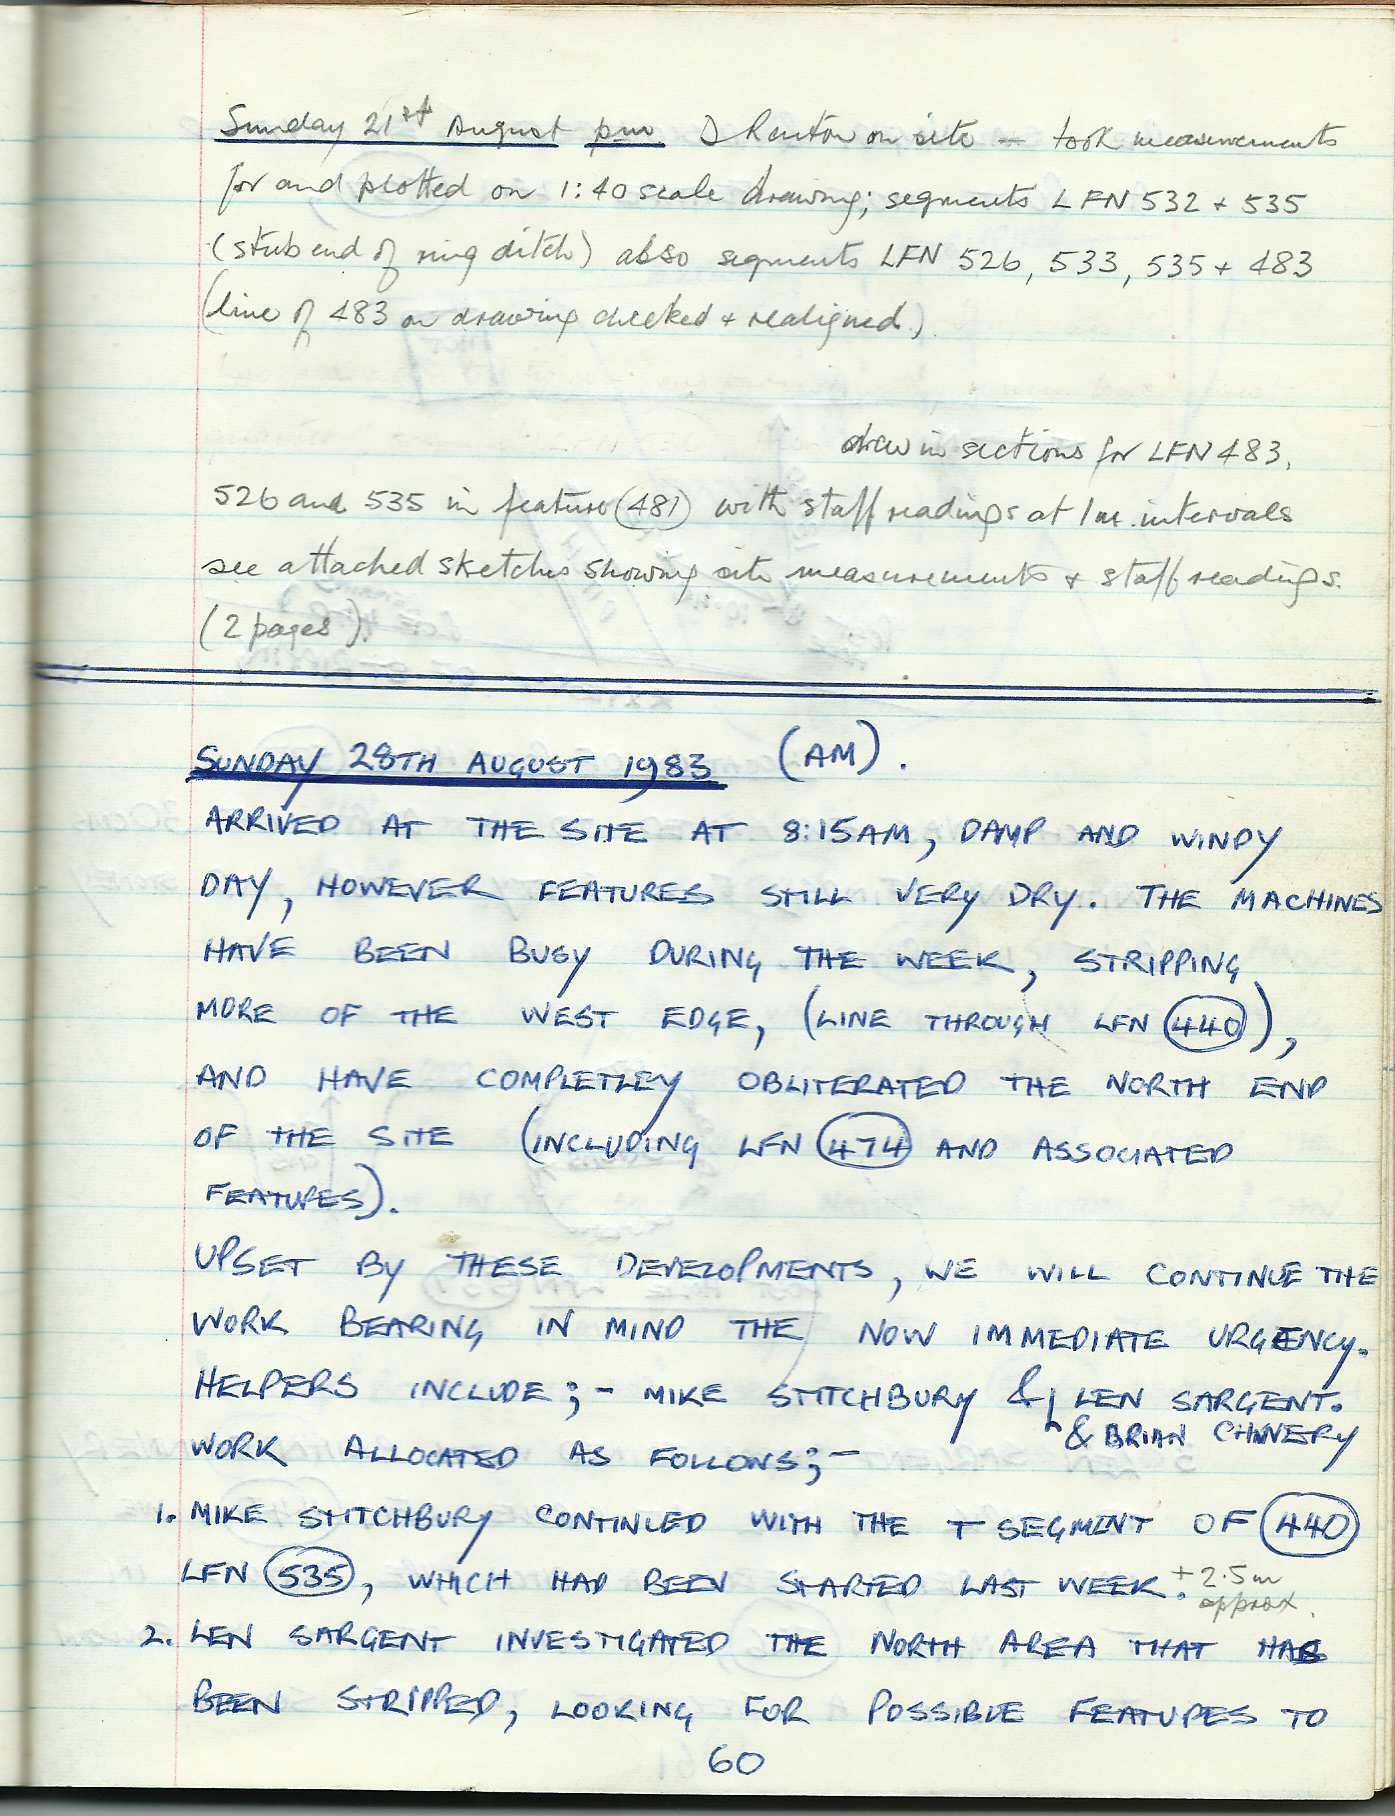 Sunday 21st August pm D Renton on site — took measurements
for and plotted on 1:40 scale drawing; segments LFN 532 + 535
(stub end of ring ditch) also segments LFN 526, 533, 535 + 483
(line of 483 on drawing checked + realigned)
draw in sections for LFN 483,
526 and 535 in feature (481) with staff readings at 1m. intervals
see attached sketches showing site measurements + staff readings.
(2 pages).
SUNDAY 28TH AUGUST 1983 (AM).
ARRIVED AT THE SITE AT 8:15AM, DAMP AND WINDY
DAY, HOWEVER FEATURES STILL VERY DRY. THE MACHINES
HAVE BEEN BUSY DURING THE WEEK, STRIPPING
MORE OF THE WEST EDGE, (LINE THROUGH LFN 440),
AND HAVE COMPLETLEY OBLITERATED THE NORTH END
OF THE SITE (INCLUDING LFN 474 AND ASSOCIATED
FEATURES).
UPSET BY THESE DEVELOPMENTS, WE WILL CONTINUE THE
WORK BEARING IN MIND THE NOW IMMEDIATE URGENCY.
HELPERS INCLUDE;- MIKE STITCHBURY & LEN SARGENT.
& BRIAN CHINERY
WORK ALLOCATED AS FOLLOWS;-
1. MIKE STITCHBURY CONTINUED WITH THE T SEGMENT OF 440
LFN 535, WHICH HAD BEEN STARTED LAST WEEK. + 2.5m
approx.
2. LEN SARGENT INVESTIGATED THE NORTH AREA THAT HAS
BEEN STRIPPED, LOOKING FOR POSSIBLE FEATURES TO
60